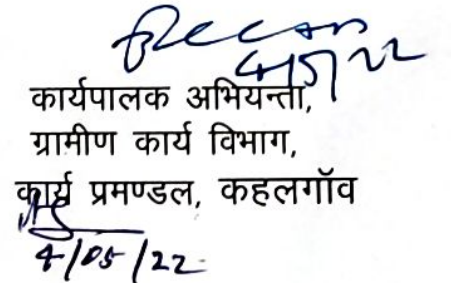 4/5/22
कार्यपालक अभियन्ता,
ग्रामीण कार्य विभाग,
कार्य प्रमण्डल, कहलगॉव
4/05/22